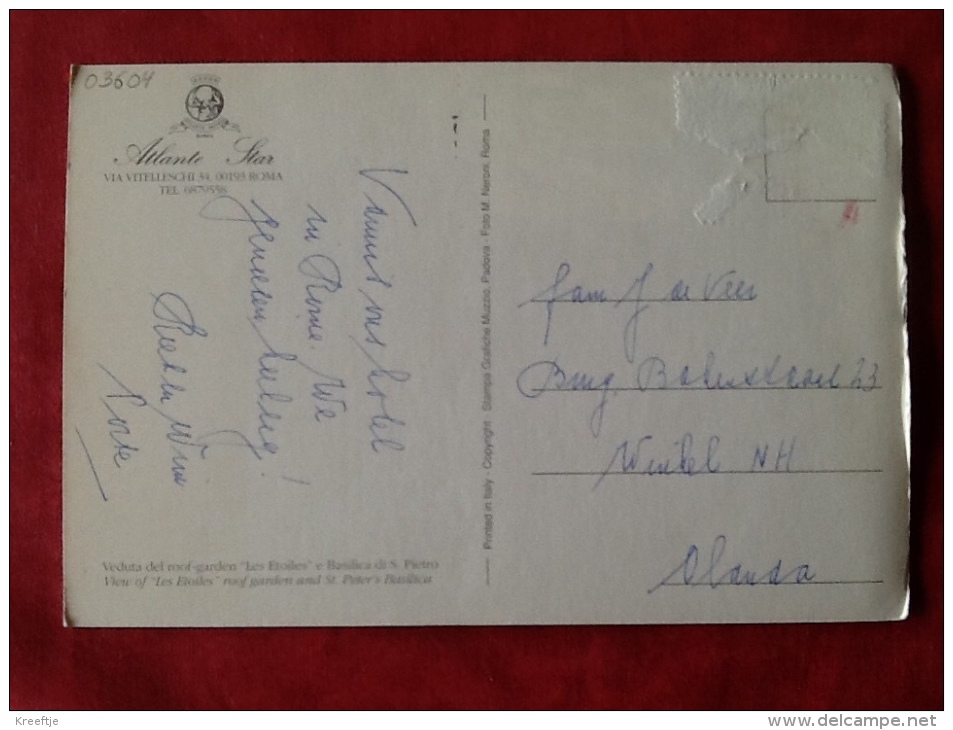 03604
Atlante Star
VIA VITELLESCHI 34, 00193 ROMA
TEL. 6879558
Vanuit ons hotel
in Rome. We
genieten hevig!
Veduta del roof-garden "Les Etoiles" e Basilica di S. Pietro
View of "Les Etoiles" roof garden and St. Peter's Basilica
Printed in Italy - Copyright Stampa Grafiche Muzzio, Padova Foto M. Neroni, Roma
Fam J de Vries
Burg. 23
Winkel NH
Olanda
Kreeftje
www.delcampe.net